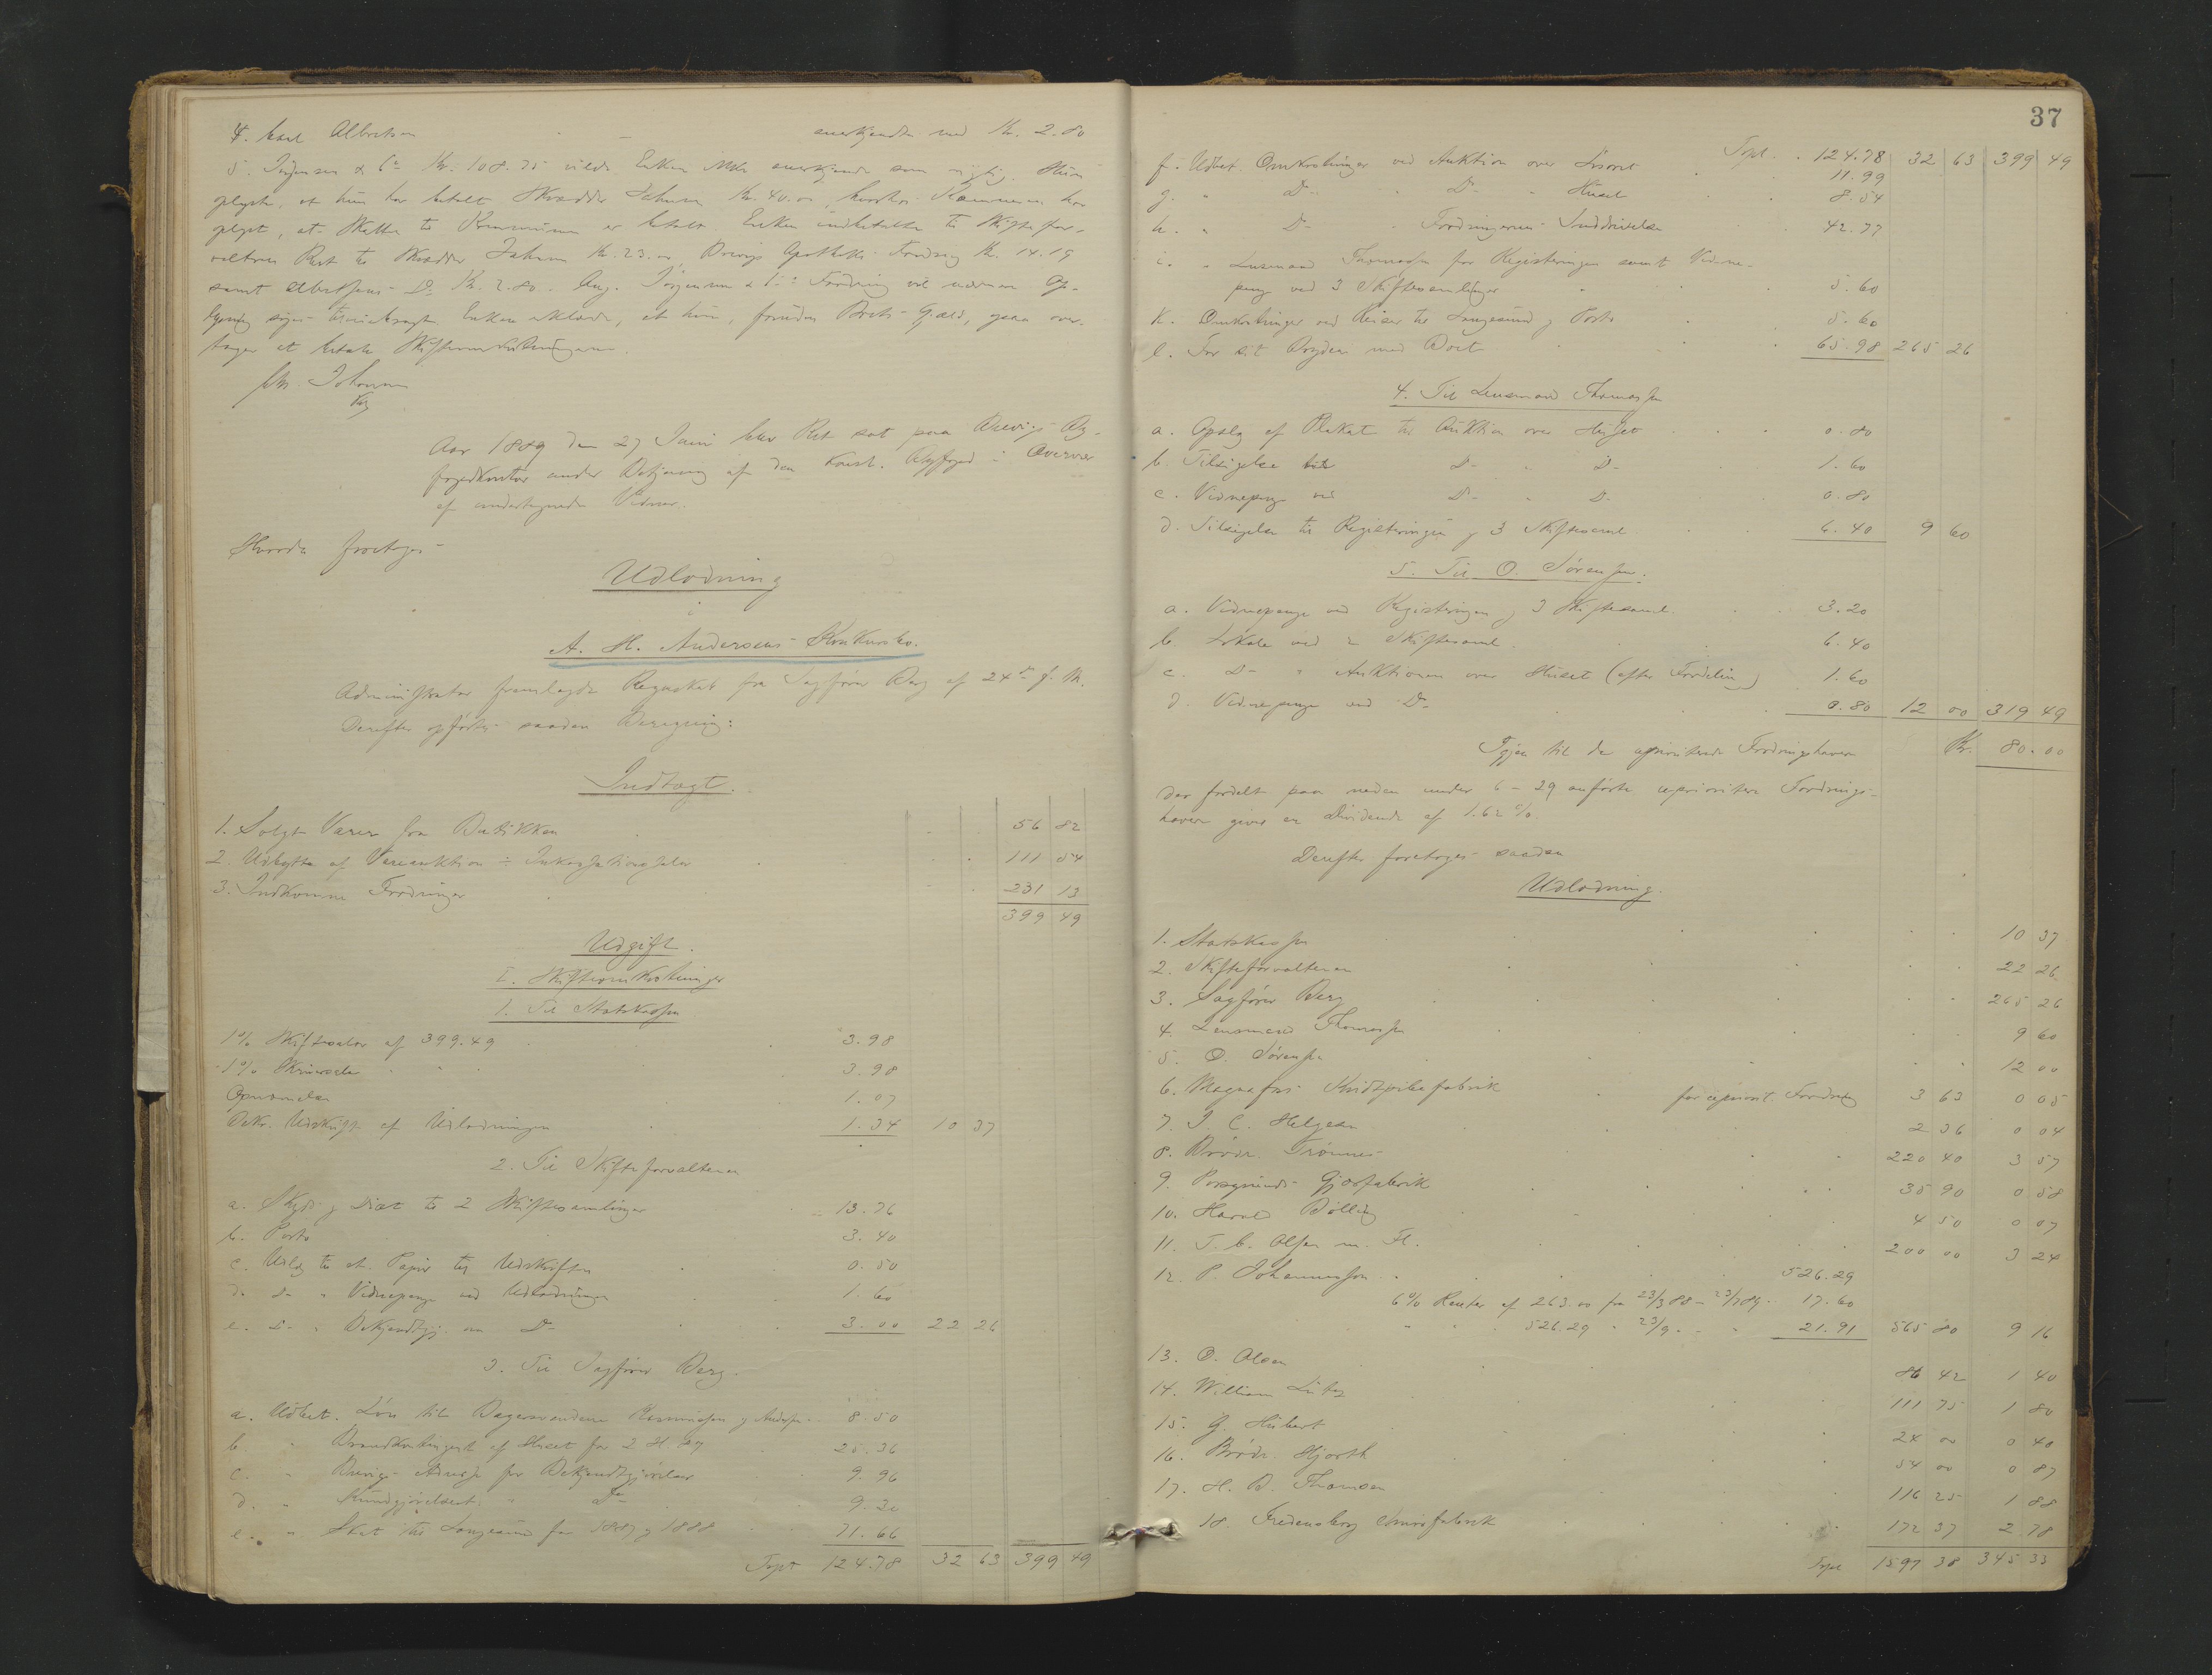 4. Carl Albretsen anerkjendtes med Kr. 2.80
5. Jörgensen & Co Kr. 108.75 vilde Enken ikke anerkjende som rigtig. Hun
oplyste, at hun har betalt Skrædder Kr. 40.00, hvorhos Kæmneren har
oplyst, at Skatten til Kommunen er betalt. Enken indbetalte til Skiftefor-
valteren Rest til Skrædder Kr. 23.00, Brevigs Apotheks Fordring Kr. 14.19
samt Albretsens Do Kr. 2.80. Aug. Jörgensen & Co Fordring vil nærmere Op-
lysning Enken erklærede, at hun, foruden Boets Gjæld, ogsaa over-
tager at betale Skifteomkostningerne.
Chr. Johnsen
Aar 1889 den 27 Juni blev Ret sat paa Brevigs By-
fogedkontor under Betjening af den konst. Byfoged i Overvær
af undertegnede Vidner.
Hvorda foretoges
Udlodning
i
A. H. Andersens Konkursbo.
Administrator fremlagde Regnskab fra Sagförer Berg af 24de f. M.
Derefter opförtes saadan Beregning:
Indtægt.
1. Solgte Varer fra Butikken 56 82
2. Udbytte af Vareauktion ÷ 111 54
3. Indkomne Fordringer 231 13
399 49
Udgift.
I. Skifteomkostninger
1. Til Statskassen
1% Skiftesalær af 399.49 3.98
1% Skriversalær " " 3.98
Opnævnelse 1.07
Bekr. Udskrift af Udlodningen 1.34 10 37
2. Til Skifteforvalteren
a. Skyds og Diæt til 2 Skiftesamlinger 13.76
b. Porto 3.40
c. Udlæg til st. Papir til Udskriften 0.50
d. Do " Vidnepenge ved Udlodningen 1.60
e. Do " Bekjendtgj. om Do 3.00 22 26
3. Til Sagförer Berg.
a. Udbet. Lön til Bagersvendene Rasmussen og Andersen 8.50
b. " Brandkontingent af Huset for 2 H. 87 25.36
c. " Brevigs Adresse for Bekjendtgjörelser 9.96
d. " Kundgjörelsest. " Do 9.30
e. " Skat til Langesund for 1887 og 1888 71.66
Trpt 124.78 32 63 399 49
37
Trpt. 124.78 32 63 399 49
f. Udbet. Omkostninger ved Auktion over Lösöret 11.99
g. " Do " Do " Huset 8.54
h. " Do " Fordringernes Inddrivelse 42.77
i. " Lensmand Thomassen for Registeringen samt Vidne-
penge ved 3 Skiftesamlinger 5.60
k. Omkostninger ved Reiser til Langesund og Porto 5.60
l. For sit Bryderi med Boet 65.98 265 26
4. Til Lensmand Thomassen
a. Opslag af Plakat til Auktion over Huset 0.80
b. Tilsigelse til Do " Do 1.60
c. Vidnepenge ved Do " Do 0.80
d. Tilsigelse til Registeringen og 3 Skiftesaml. 6.40 9 60
5. Til O. Sörensen.
a. Vidnepenge ved Registeringen og 3 Skiftesaml. 3.20
b. Lokale ved 2 Skiftesaml. 6.40
c. Do " Auktionen over Huset (efter Fordeling) 1.60
d. Vidnepenge ved Do 0.80 12 00 319 49
Igjen til de uprioriterede Fordringshavere Kr. 80.00
der fordelt paa neden under 6 – 29 anförte uprioritere Fordrings-
havere giver en Dividende af 1.62%.
Derefter foretoges saadan
Udlodning.
1. Statskassen 10 37
2. Skifteforvalteren 22 26
3. Sagförer Berg 265 26
4. Lensmand Thomassen 9 60
5. O. Sörensen 12 00
6. Magnafos for upriorit. Fordring 3 63 0 05
7. J. C. Helgesen 2 36 0 04
8. Brödr. Trönnes 220 40 3 57
9. Porsgrunds Gjærfabrik 35 90 0 58
10. Harald Bölling 4 50 0 07
11. T. C. Olsen m. Fl. 200 00 3 24
12. P. Johannessen 526.29
6% Renter af 263.00 fra 23/3 88 – 23/7 89. 17.60
" " " 526.29 " 23/9 " – " 21.91 565 80 9 16
13. O. Olsen 86 42 1 40
14. William Lütz 111 75 1 80
15. G. Hübert 24 00 0 40
16. Brödr. Hjorth 54 00 0 87
17. H. B. Thomsen 116 25 1 88
18. Fredensborg fabrik 172 37 2.78
Trpt 1597 38 345 33